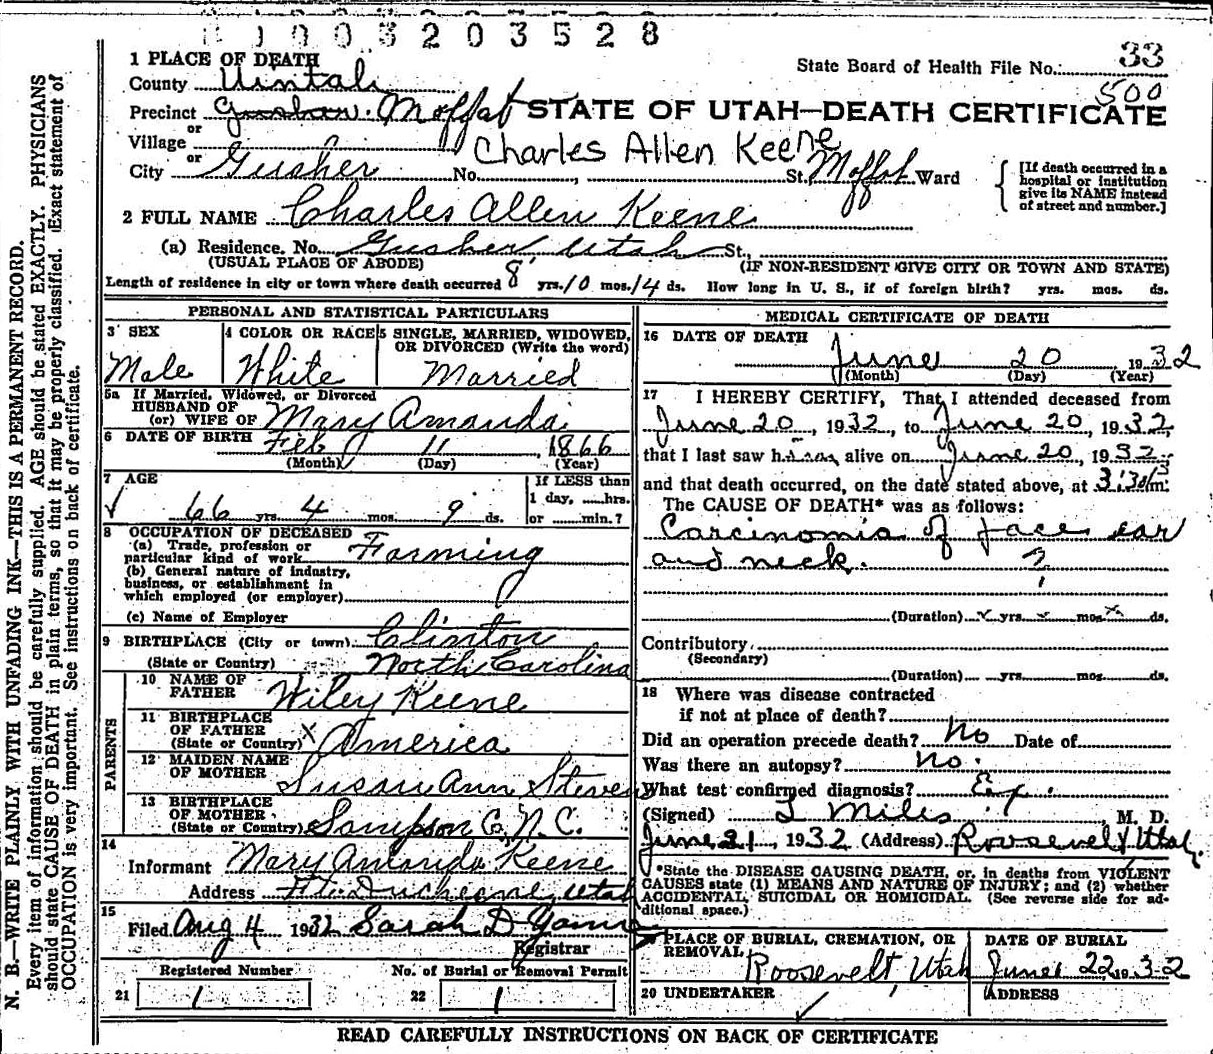 0 0 3 2 0 3 5 2 8
33
1 PLACE OF DEATH
State Board of Health File No.
500
County Uintah
Precinct Moffat
STATE OF UTAH—DEATH CERTIFICATE
or
Village
Charles Allen Keene
or
City Gusher No. , St., Moffat Ward
[If death occurred in a hospital or institution give its NAME instead of street and number.]
2 FULL NAME Charles Allen Keene
(a) Residence. No. Gusher, Utah St.,
(USUAL PLACE OF ABODE) (IF NON-RESIDENT GIVE CITY OR TOWN AND STATE)
Length of residence in city or town where death occurred 8 yrs. 10 mos. 14 ds. How long in U. S., if of foreign birth? yrs. mos. ds.
PERSONAL AND STATISTICAL PARTICULARS
3 SEX
Male
4 COLOR OR RACE
White
5 SINGLE, MARRIED, WIDOWED, OR DIVORCED (Write the word)
Married
5a If Married, Widowed, or Divorced
HUSBAND OF
(or) WIFE OF Mary Amanda
6 DATE OF BIRTH Feb 11, 1866
(Month) (Day) (Year)
7 AGE
66 yrs. 4 mos. 9 ds.
If LESS than
1 day, ......hrs.
or ........min.?
8 OCCUPATION OF DECEASED
(a) Trade, profession or
particular kind of work Farming
(b) General nature of industry,
business, or establishment in
which employed (or employer)
(c) Name of Employer
9 BIRTHPLACE (City or town) Clinton
(State or Country) North Carolina
PARENTS
10 NAME OF
FATHER Wiley Keene
11 BIRTHPLACE
OF FATHER
(State or Country) X America
12 MAIDEN NAME
OF MOTHER Susan Ann Steven
13 BIRTHPLACE
OF MOTHER
(State or Country) Sampson Co, N.C.
14
Informant Mary Amanda Keene
Address Ft. Duchesne, Utah
15
Filed Aug 4 1932 Sarah D
Registrar
Registered Number No. of Burial or Removal Permit
21 1 22 1
MEDICAL CERTIFICATE OF DEATH
16 DATE OF DEATH
June 20 1932
(Month) (Day) (Year)
17 I HEREBY CERTIFY, That I attended deceased from
June 20, 1932, to June 20, 1932,
that I last saw h alive on June 20, 1932
and that death occurred, on the date stated above, at 3:30
The CAUSE OF DEATH* was as follows:
Carcinomia of face ear
and neck. ?
(Duration) yrs. mos. ds.
Contributory
(Secondary)
(Duration) yrs. mos. ds.
18 Where was disease contracted
if not at place of death?
Did an operation precede death? No Date of
Was there an autopsy? No.
What test confirmed diagnosis? Ex.
(Signed) Miles, M. D.
June 21, 1932 (Address) Roosevelt Utah.
*State the DISEASE CAUSING DEATH, or, in deaths from VIOLENT
CAUSES state (1) MEANS AND NATURE OF INJURY; and (2) whether
ACCIDENTAL, SUICIDAL OR HOMICIDAL. (See reverse side for additional space.)
PLACE OF BURIAL, CREMATION, OR
REMOVAL
Roosevelt, Utah
DATE OF BURIAL
June 22 1932
20 UNDERTAKER
ADDRESS
READ CAREFULLY INSTRUCTIONS ON BACK OF CERTIFICATE
N. B.—WRITE PLAINLY WITH UNFADING INK—THIS IS A PERMANENT RECORD.
Every item of information should be carefully supplied. AGE should be stated EXACTLY. PHYSICIANS
should state CAUSE OF DEATH in plain terms, so that it may be properly classified. Exact statement of
OCCUPATION is very important. See instructions on back of certificate.